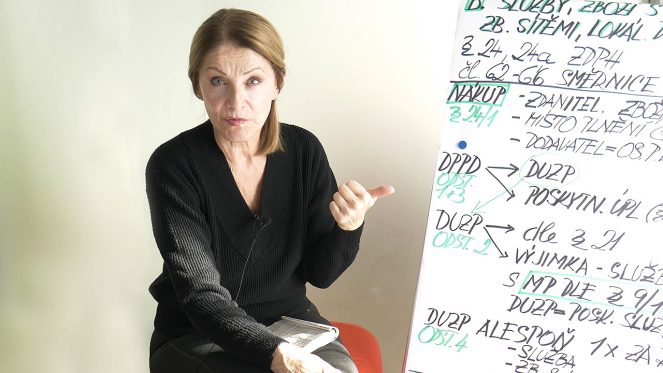 D. SLUŽBY, ZBOŽÍ S
ZB. SÍTĚMI, LOKÁL. D
§ 24, 24a ZDPH
čl. 62-66 SMĚRNICE
NÁKUP - ZDANITEL. ZBOŽ
§ 24/1 - MÍSTO PLNĚNÍ
- DODAVATEL=
DPPD DUZP
ODST. 1+3 POSKYTN. ÚPL
DUZP dle § 21
ODST. 2 VÝJIMKA - SLUŽB
S MP DLE § 9/1
DUZP= POSK. SLUŽ
DUZP ALESPOŇ 1x ZA
ODST. 4 - SLUŽBA
- ZB.